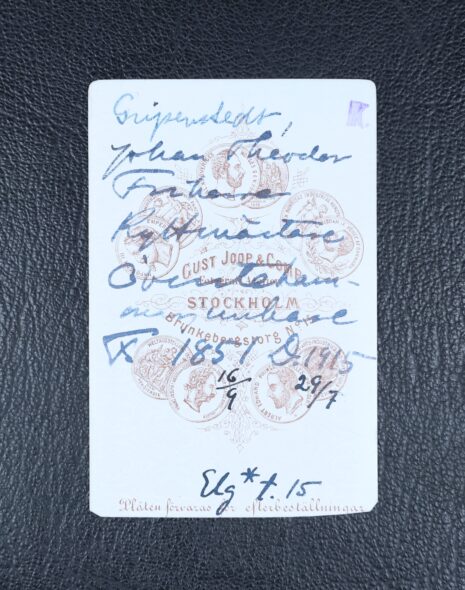 Gripenstedt,
Johan Theodor
Friherre
Ryttmästare
GUST JOOP & COMP.
STOCKHOLM
Brunkebergstorg No
1851 D. 1915
16/9 29/7
Elg * t. 15
Plåten förvaras för efterbeställningar